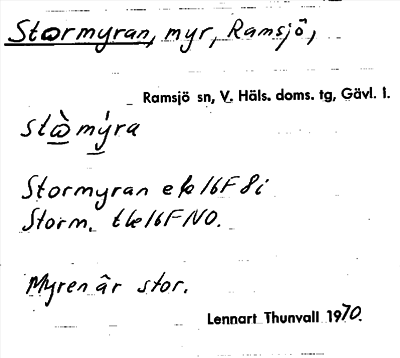 Stormyran, myr, Ramsjö,
Ramsjö sn, V. Häls. doms. tg, Gävl. l.
stὼmýra
Stormyran ek 16F 8i
Storm. tk 16F NO.
Myren är stor.
Lennart Thunvall 1970.